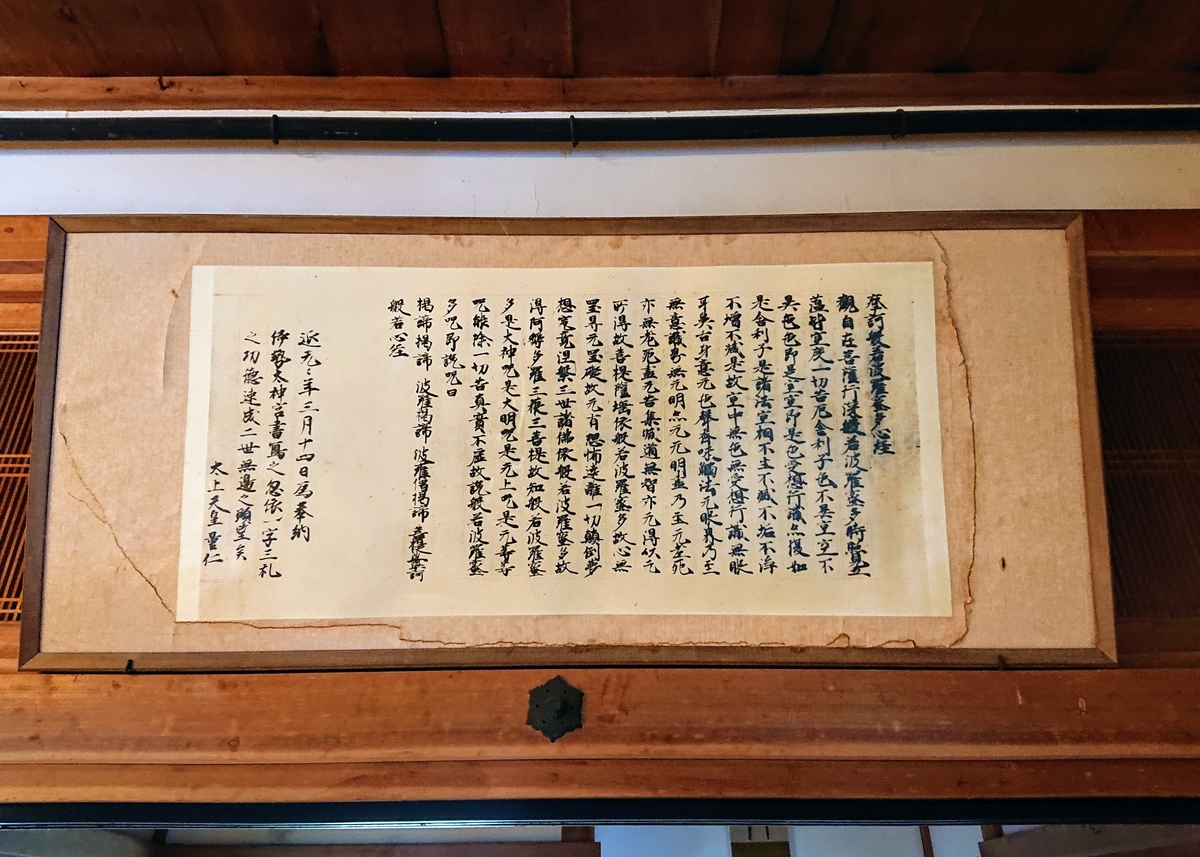 摩訶般若波羅蜜多心経
觀自在菩薩行深般若波羅蜜多時照見五
蘊皆空度一切苦厄舎利子色不異空空不
異色色即是空空即是色受想行識亦復如
是舎利子是諸法空相不生不滅不垢不浄
不増不減是故空中無色無受想行識無眼
耳鼻舌身意无色聲香味觸法无眼界乃至
無意識界無无明亦无无明盡乃至无老死
亦無老死盡无苦集滅道無智亦无得以无
所得故菩提薩埵依般若波羅蜜多故心無
罣㝵无罣礙故无有恐怖遠離一切顛倒夢
想究竟涅槃三世諸佛依般若波羅蜜多故
得阿耨多羅三藐三菩提故知般若波羅蜜
多是大神呪是大明呪是无上呪是无等等
呪能除一切苦真實不虚故説般若波羅蜜
多呪即説呪曰
揭諦揭諦 波羅揭諦 波羅僧揭諦 菩提娑婆訶
般若心经
延元元年三月十四日為奉納
伊勢太神宮書寫之忽依一字三礼
之功德速成二世無邊之願望矣
太上天皇量仁